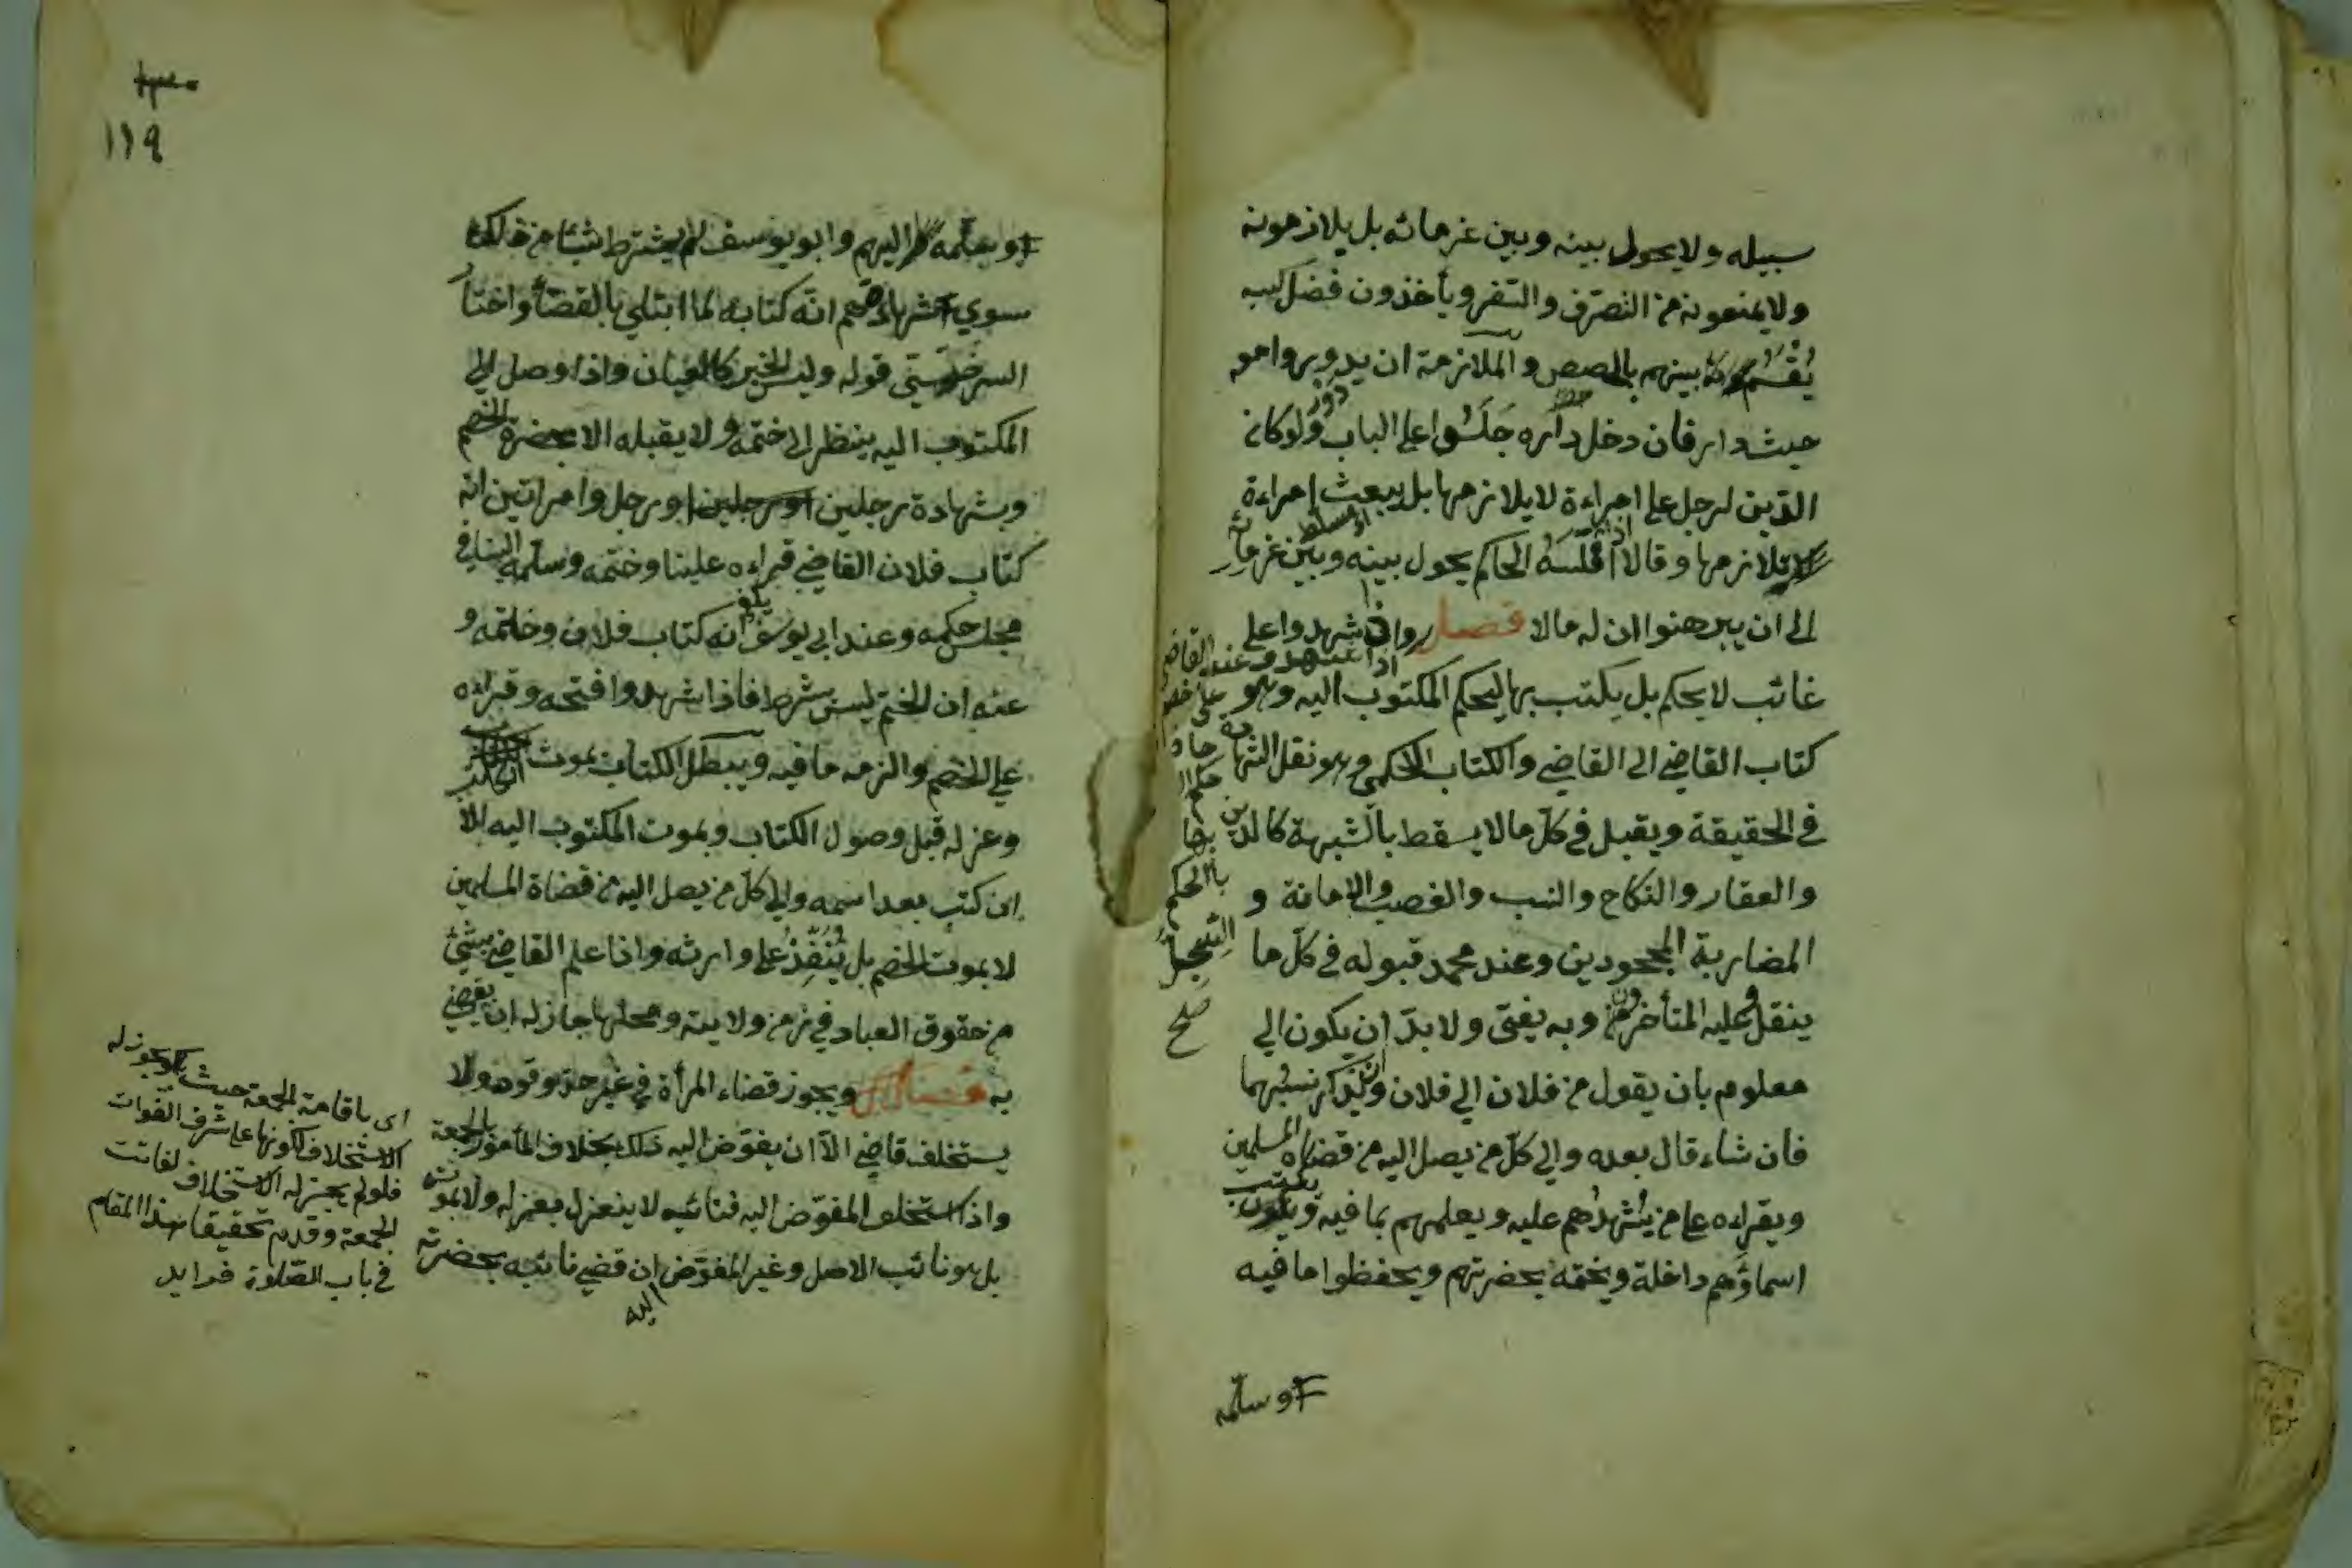 سبيله ولا يحول بينه وبين غرمائه بل يلازمونه
ولا يمنعونه من التصرف والسفر ويأخذون فضل كسبه
يقسم بينهم بالحصص والملازمة ان يدوروا معه
حيث دار فان دخل داره جلسوا على الباب ولو كان
الدين لرجل على امراءة لا يلازمها بل يبعث امراءة
تلازمها وقالا اذا فلسه الحاكم يحول بينه وبين غرمائه
الى ان يبرهنوا ان له مالا فصل واذا شهدوا على
غائب لا يحكم بل يكتب بها ليحكم المكتوب اليه وهو
كتاب القاضي الى القاضي والكتاب الحكمي وهو نقل الشهادة
في الحقيقة ويقبل في كل ما لا يسقط بالشبهة كالدين
والعقار والنكاح والنسب والغصب والامانة و
المضاربة المجحودين وعند محمد قبوله في كل ما
ينقل وعليه المتأخرون وبه يفتى ولا بد ان يكون الي
معلوم بان يقول من فلان الي فلان ويذكر نسبهما
فان شاء قال بعده والي كل من يصل اليه من قضاة المسلمين
ويقراءه على من يشهدهم عليه ويعلمهم بما فيه ويكتب
اسماؤهم داخلة ويختمه بحضرتهم ويحفظوا ما فيه
وسلمه
اذا شهدو عند القاضي
على خصم
حكم
بها
بالحكم
السجل
صح
١١٩
اليهم وابو يوسف لم يشترط شيئا من ذلك
سوي اشهادهم انه كتابه لما ابتلي بالقضأ واختار
السرخسي قوله وليس الخبر كالعيان واذا وصل الي
المكتوب اليه ينظر الى ختمه ولا يقبله الا بحضرة الخصم
وبشهادة رجلين او رجل وامراتين انه
كتاب فلان القاضي قراءه علينا وختمه وسلمه الينا في
مجلس حكمه وعند ابي يوسف يكفي انه كتاب فلان وختمه و
عنه ان الختم ليس بشرط فاذا شهدوا فتحه وقراءه
علي الخصم والزمه ما فيه ويبطل الكتاب بموت الكاتب
وعزله قبل وصول الكتاب وبموت المكتوب اليه الا
ان كتب بعد اسمه والي كل من يصل اليه من قضاة المسلمين
لا بموت الخصم بل ينفذ على وارثه واذا علم القاضي بشئ
من حقوق العباد في زمن ولايته ومحلها جاز له ان يقضي
به فصل ويجوز قضاء المرأة في غير حد وقود ولا
يستخلف قاضي الا ان يفوض اليه ذلك بخلاف المأمور بالجمعة
واذا استخلف المفوض اليه فنائبه لا ينعزل بعزله ولا بموته
بل هو نائب الاصل وغير المفوض اليه ان قضي نائبه بحضرته
اى باقامة الجمعة حيث يجوز له
الاستخلاف لكونها على شرف الفوات
فلو لم يجز له الاستخلاف لفاتت
الجمعة وقدم تحقيقا هذا المقام
في باب الصلوة فرايد